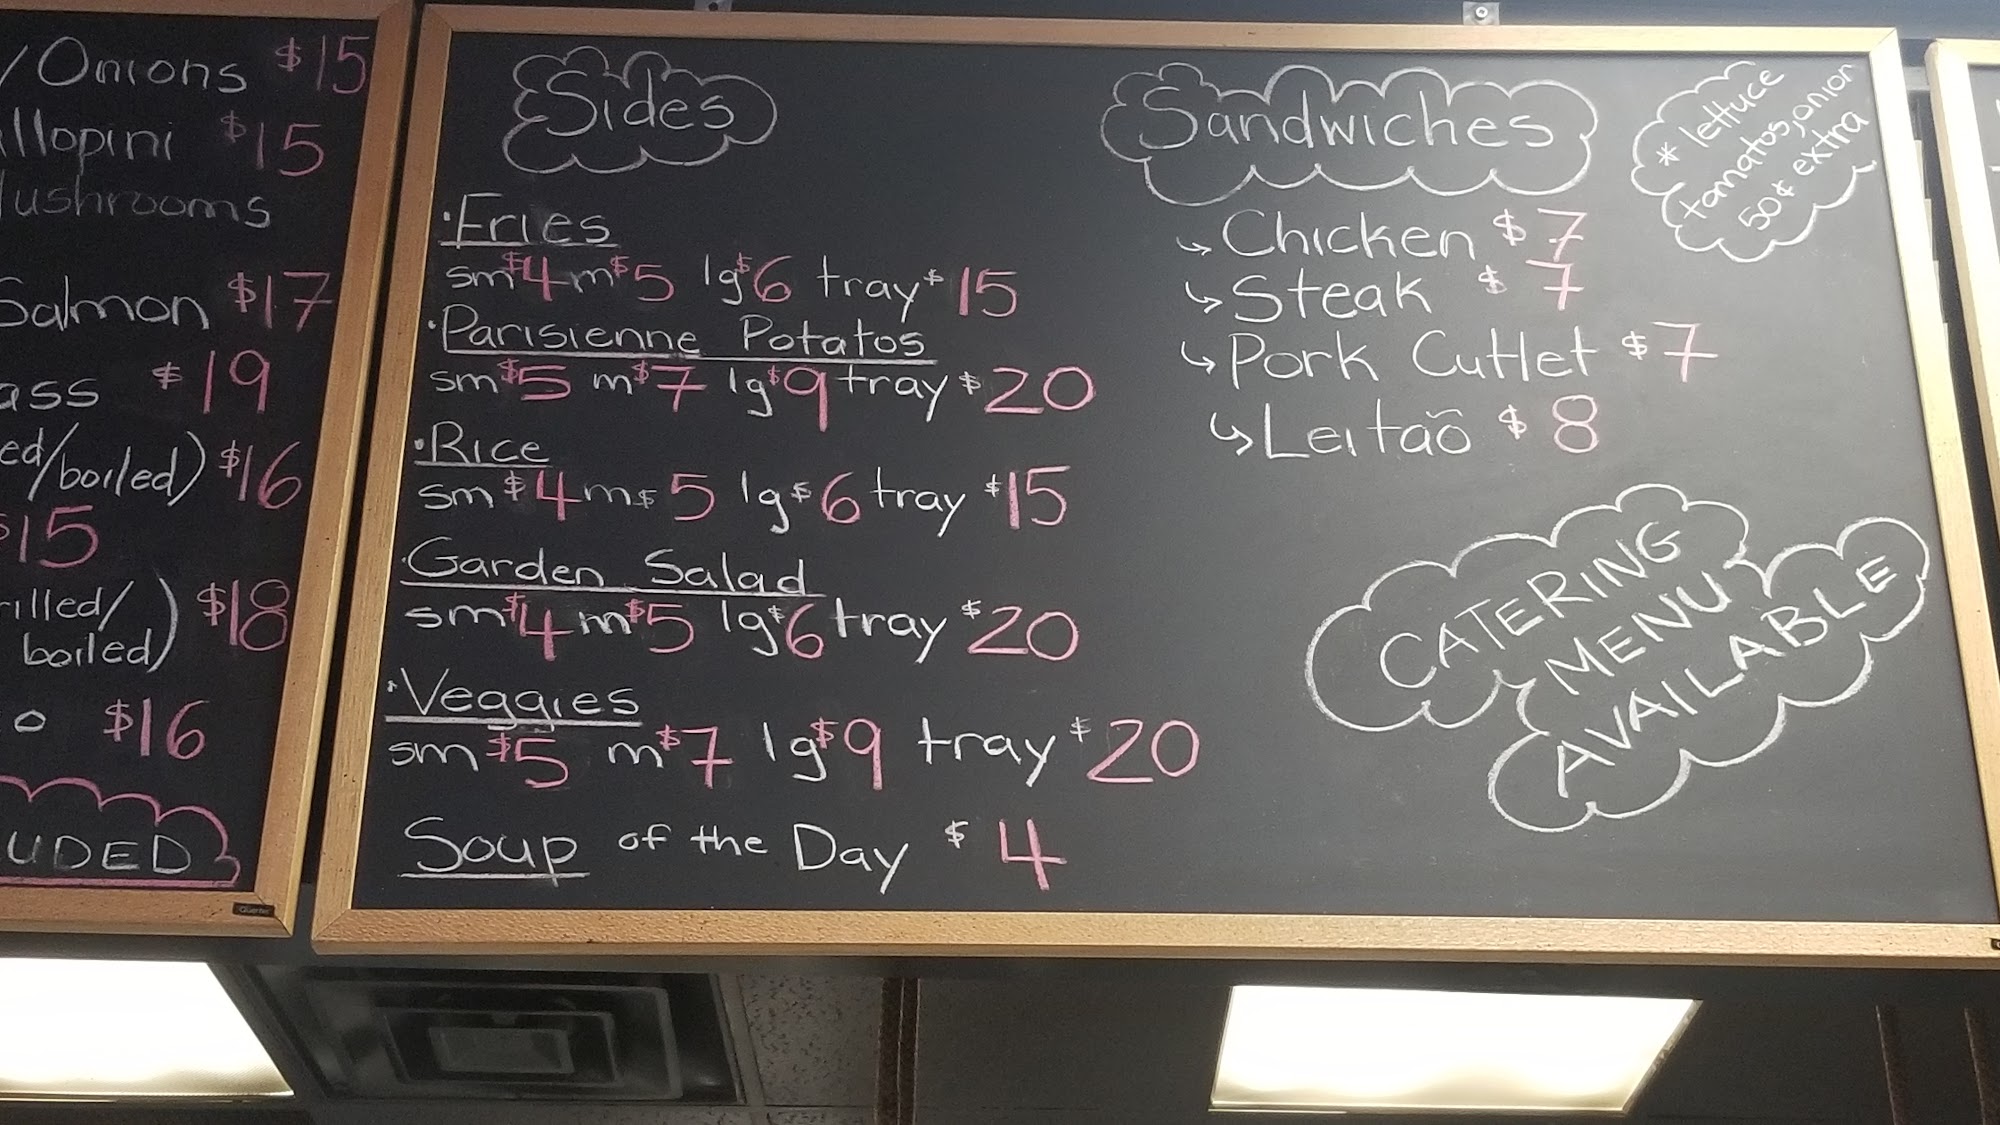 /Onions $15
llopini $15
Mushrooms
Salmon $17
ass $19
ed/boiled) $16
$15
rilled/
boiled) $18
o $16
UDED
Sides
·Fries
sm $4 m $5 lg $6 tray $15
·Parisienne Potatos
sm $5 m $7 lg $9 tray $20
·Rice
sm $4 m $5 lg $6 tray $15
·Garden Salad
sm $4 m $5 lg $6 tray $20
·Veggies
sm $5 m $7 lg $9 tray $20
Soup of the Day $4
Sandwiches
↳ Chicken $7
↳ Steak $7
↳ Pork Cutlet $7
↳ Leitaõ $8
* lettuce
tomatos, onion
50¢ extra
CATERING
MENU
AVAILABLE